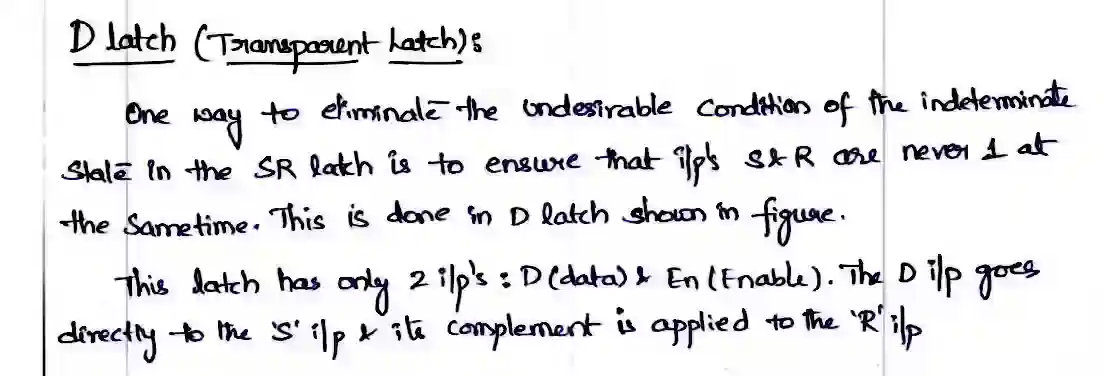 D latch (Transparent Latch):
One way to eliminate the undesirable condition of the indeterminate
state in the SR latch is to ensure that i/p's S & R are never 1 at
the Sametime. This is done in D latch shown in figure.
This latch has only 2 i/p's : D (data) & En (Enable). The D i/p goes
directly to the 'S' i/p & its complement is applied to the 'R' i/p